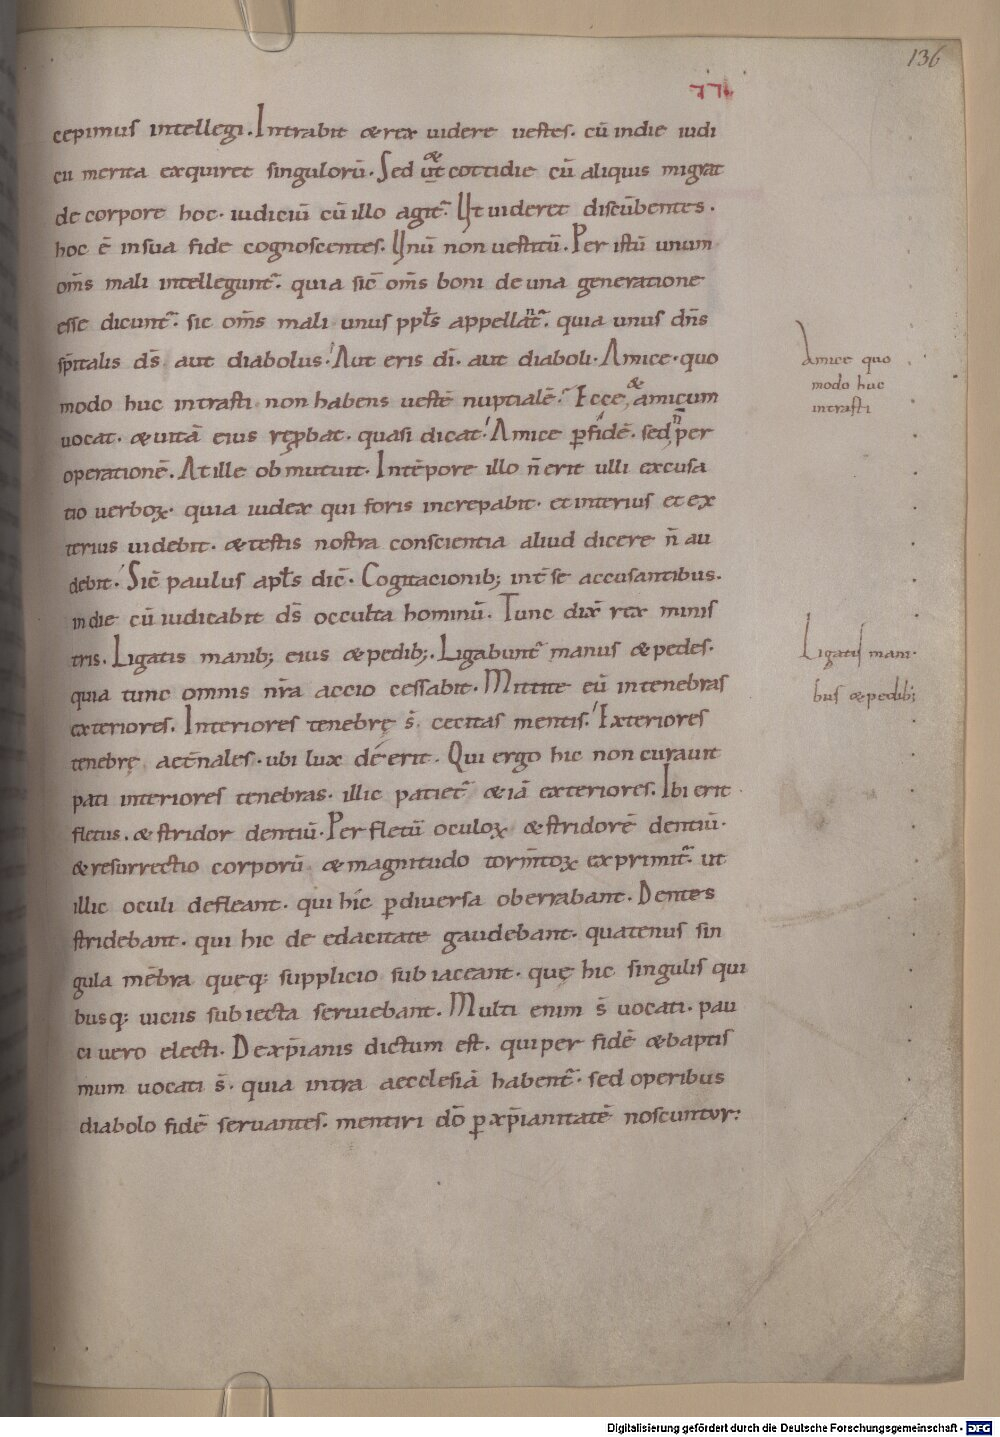 136
cepimus intellegi. Intrabit & rex uidere uestes. cū in die iudi
cii merita exquiret singulorū. Sed ut & cottidie cū aliquis migrat
de corpore hoc. iudiciū cū illo agit̄. Ut uideret discūbentes.
hoc ē in sua fide cognoscentes. Unū non uestitū. Per istū unum
om̄s mali intellegunt̄. quia sic̄ om̄s boni de una generatione
esse dicunt̄. sic om̄s mali unus ppl̄s appellant̄. quia unus dn̄s
sp̄italis ds̄ aut diabolus. Aut eris dī. aut diaboli. Amice. quo
modo huc intrasti non habens uestē nuptialē. Ecce & amicum
uocat. & uitā eius rep̱bat. quasi dicat. Amice p̱ fidē. sed n̄ per
operationē. At ille obmutuit. In tēpore illo n̄ erit ulli excusa
tio uerboꝝ. quia iudex qui foris increpabit. et interius et ex
terius uidebit. & testis nostra conscientia aliud dicere n̄ au
debit. Sic̄ paulus apl̄s dic̄. Cogitacionib; int̄ se accusantibus.
in die cū iudicabit ds̄ occulta hominū. Tunc dix̄ rex minis
tris. Ligatis manib; eius & pedib;. Ligabunt̄ manus & pedes.
quia tunc omnis nr̄a accio cessabit. Mittite eū in tenebras
exteriores. Interiores tenebrę s̄. cecitas mentis. Exteriores
tenebrę aet̄nales. ubi lux deerit. Qui ergo hic non curauit
pati interiores tenebras. illic patiet̄ & iā exteriores. Ibi erit
fletus. & stridor dentiū. Per fletū oculoꝝ & stridorē dentiū.
& resurrectio corporū & magnitudo torm̄toꝝ exprimit̄. ut
illic oculi defleant. qui hic p̱ diuersa oberrabant. Dentes
stridebant. qui hic de edacitate gaudebant. quatenus sin
gula mēbra queq: supplicio subiaceant. quę hic singulis qui
busq: uiciis subiecta seruiebant. Multi enim s̄ uocati. pau
ci uero electi. De xp̄ianis dictum est. qui per fidē & baptis
mum uocati s̄. quia intra aecclesiā habent̄. sed operibus
diabolo fidē seruantes. mentiri dō p̱ xp̄ianitatē noscuntur:
Amice quo
modo huc
intrasti
Ligatis mani
bus & pedib;
Digitalisierung gefördert durch die Deutsche Forschungsgemeinschaft - DFG